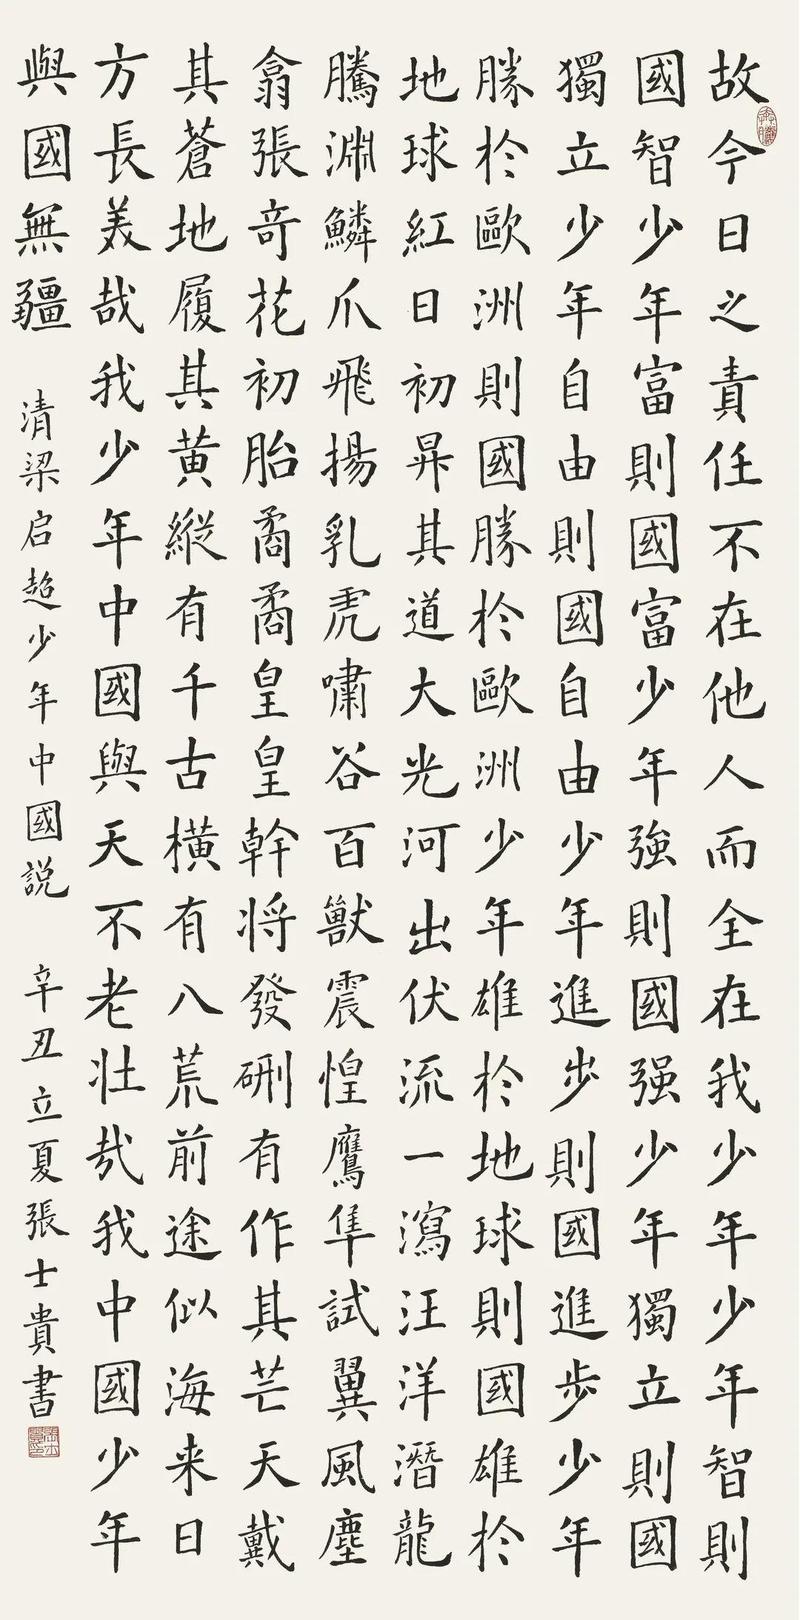 故今日之責任不在他人而全在我少年少年智則
國智少年富則國富少年強則國强少年獨立則國
獨立少年自由則國自由少年進步則國進步少年
勝於歐洲則國勝於歐洲少年雄於地球則國雄於
地球紅日初昇其道大光河出伏流一瀉汪洋潛龍
騰淵鱗爪飛揚乳虎嘯谷百獸震惶鷹隼試翼風塵
翕張奇花初胎矞矞皇皇幹將發硎有作其芒天戴
其蒼地履其黃縱有千古橫有八荒前途似海来日
方長美哉我少年中國與天不老壯哉我中國少年
與國無疆
清梁启超少年中國説
辛丑立夏張士貴書